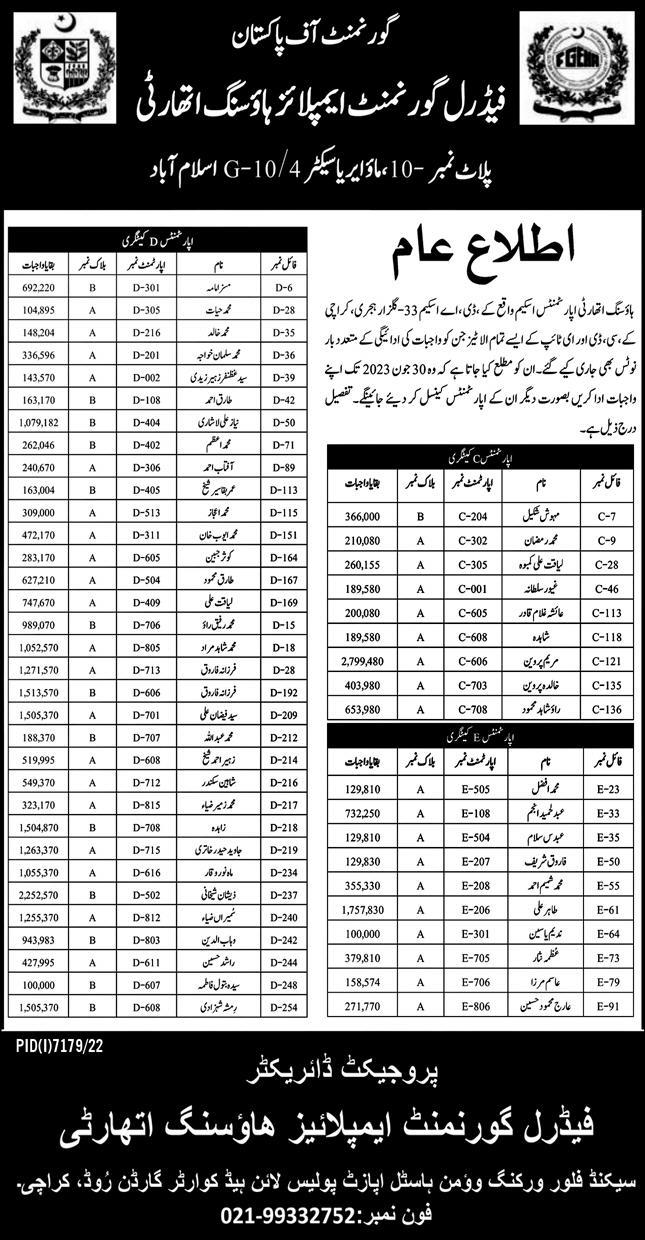 گورنمنٹ آف پاکستان
فیڈرل گورنمنٹ ایمپلائز ہاؤسنگ اتھارٹی
پلاٹ نمبر -10، ماؤ ایریا سیکٹر G-10/4 اسلام آباد
FGEHA
اطلاع عام
ہاؤسنگ اتھارٹی اپارٹمنٹس اسکیم واقع کے، ڈی، اے اسکیم 33-گلزار ہجری، کراچی
کے، سی، ڈی اور ای ٹائپ کے ایسے تمام الاٹیز جن کو واجبات کی ادائیگی کے متعدد بار
نوٹس بھی جاری کیے گئے۔ ان کو مطلع کیا جاتا ہے کہ وہ 30 جون 2023 تک اپنے
واجبات ادا کریں بصورت دیگر ان کے اپارٹمنٹس کینسل کر دیئے جائینگے۔ تفصیل
درج ذیل ہے۔
اپارٹمنٹس C کیٹگری
فائل نمبر نام اپارٹمنٹ نمبر بلاک نمبر بقایا واجبات
C-7 مہوش شکیل C-204 B 366,000
C-9 محمد رمضان C-302 A 210,080
C-28 لیاقت علی کمبوہ C-305 A 260,155
C-46 غیور سلطانہ C-001 A 189,580
C-113 عائشہ غلام قادر C-605 A 200,080
C-118 شاہدہ C-608 A 189,580
C-121 مریم پروین C-606 A 2,799,480
C-135 خالدہ پروین C-703 A 403,980
C-136 راؤ شاہد محمود C-708 A 653,980
اپارٹمنٹس E کیٹگری
فائل نمبر نام اپارٹمنٹ نمبر بلاک نمبر بقایا واجبات
E-23 محمد افضل E-505 A 129,810
E-33 عبدالحمید انجم E-108 A 732,250
E-35 عبدس سلام E-504 A 129,810
E-50 فاروق شریف E-207 A 129,830
E-55 محمد شمیم احمد E-208 A 355,330
E-61 طاہر علی E-206 A 1,757,830
E-64 ندیم یاسین E-301 A 100,000
E-73 عظمہ نثار E-705 A 379,810
E-79 عاسم مرزا E-706 A 158,574
E-91 عارج محمود حسین E-806 A 271,770
اپارٹمنٹس D کیٹگری
فائل نمبر نام اپارٹمنٹ نمبر بلاک نمبر بقایا واجبات
D-6 مسز امامہ D-301 B 692,220
D-28 محمد حیات D-305 A 104,895
D-35 محمد خالد D-216 A 148,204
D-36 محمد سلمان خواجہ D-201 A 336,596
D-39 سید غظنفر زہیر زیدی D-002 A 143,570
D-42 طارق احمد D-108 B 163,170
D-50 نیاز علی لاشاری D-404 B 1,079,182
D-71 محمد اعظم D-402 B 262,046
D-89 آفتاب احمد D-306 A 240,670
D-113 عمر بقا سیر شیخ D-405 B 163,004
D-115 محمد اعجاز D-513 A 309,000
D-151 محمد ایوب خان D-311 A 472,170
D-164 کوثر جبین D-605 A 283,170
D-167 طارق محمود D-504 A 627,210
D-169 لیاقت علی D-409 A 747,670
D-15 محمد رفیق راؤ D-706 B 989,070
D-18 محمد شاہد مراد D-805 A 1,052,570
D-28 فرزانہ فاروق D-713 A 1,271,570
D-192 فرزانہ فاروق D-606 B 1,513,570
D-209 سید فیضان علی D-701 A 1,505,370
D-212 محمد عبداللہ D-707 B 188,370
D-214 زہیر احمد شیخ D-608 A 519,995
D-216 شاہین سکندر D-712 A 549,370
D-217 محمد زمیر ضیاء D-815 A 323,170
D-218 زاہدہ D-708 B 1,504,870
D-219 جاوید حیدر خاتری D-715 A 1,263,370
D-234 ماہ نور وقار D-616 A 1,055,370
D-237 ذیشان شیخانی D-502 B 2,252,570
D-240 نمیراں ضیاء D-812 A 1,255,370
D-242 وہاب الدین D-803 B 943,983
D-244 راشد حسین D-611 A 427,995
D-248 سیدہ بتول فاطمہ D-607 B 100,000
D-254 رمشہ شہزادی D-608 B 1,505,370
PID(I)7179/22
پروجیکٹ ڈائریکٹر
فیڈرل گورنمنٹ ایمپلائیز ھاؤسنگ اتھارٹی
سیکنڈ فلور ورکنگ وؤمن ہاسٹل اپازٹ پولیس لائن ہیڈ کوارٹر گارڈن رُوڈ، کراچی۔
فون نمبر:021-99332752